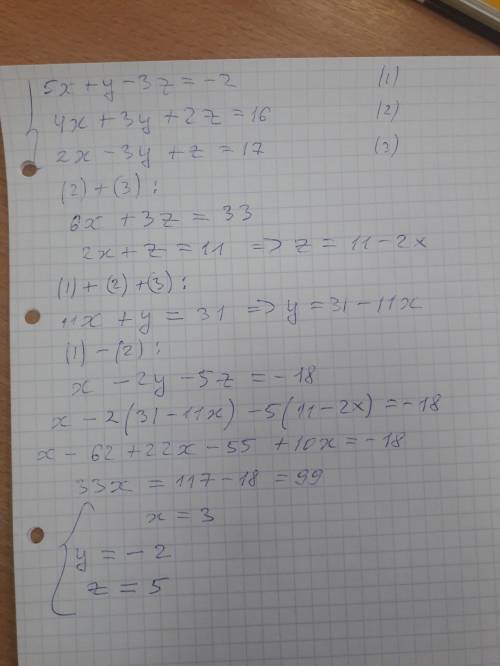 5x + y - 3z = -2 (1)
4x + 3y + 2z = 16 (2)
2x - 3y + z = 17 (3)
(2) + (3) :
6x + 3z = 33
2x + z = 11 => z = 11 - 2x
(1) + (2) + (3) :
11x + y = 31 => y = 31 - 11x
(1) - (2) :
x - 2y - 5z = -18
x - 2(31 - 11x) - 5(11 - 2x) = -18
x - 62 + 22x - 55 + 10x = -18
33x = 117 - 18 = 99
x = 3
y = -2
z = 5